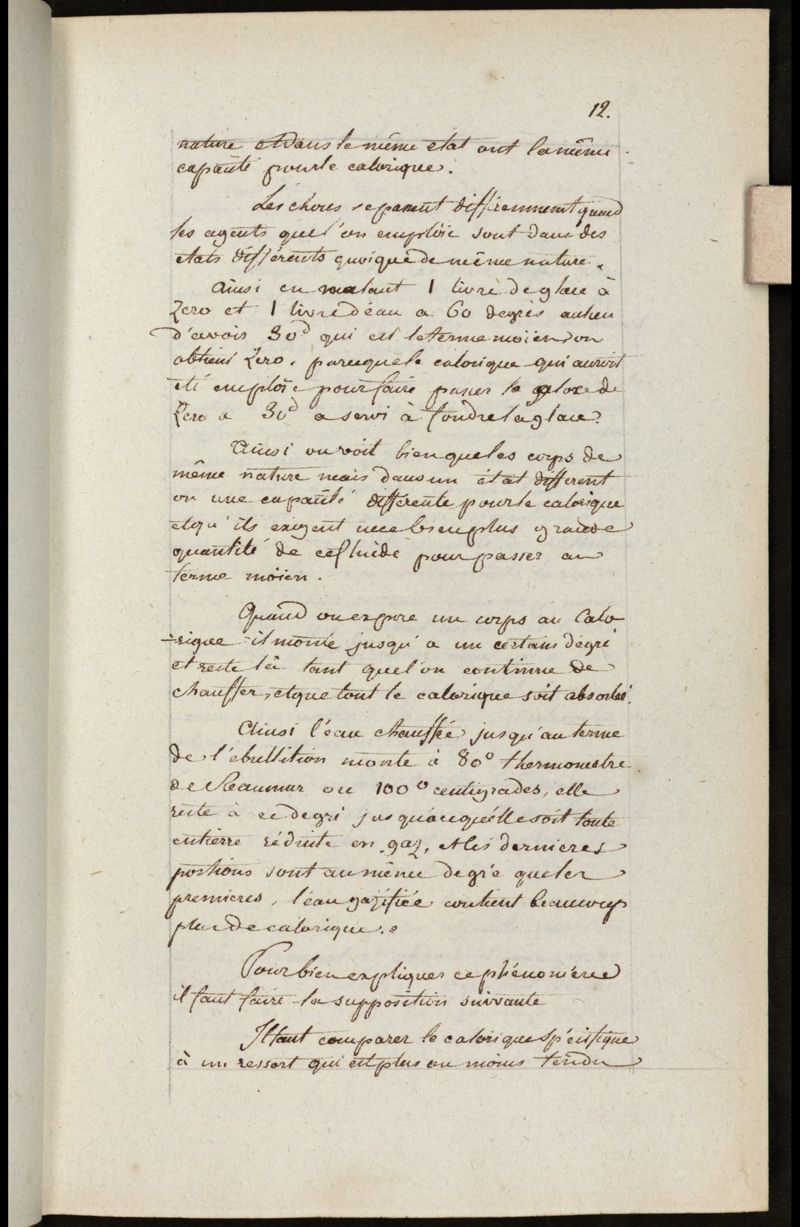 12.
nature et dans le même état ont la même
capacité pour le calorique.
Les choses se passent différemment quand
les agents que l'on emploie sont dans des
états différents quoique de même nature.
Ainsi en melant 1 livre de glace à
Zero et 1 livre d'eau a 60 degrés au lieu
d'avois 30d qui est le terme moien, on
obtient Zero, parceque le calorique qui auroit
été emploié pour faire passer la glace de
Zero a 30d a servi à fondre la glace.
Ainsi on voit bien que les corps de
même nature mais dans un état different
on une capacité differente pour le calorique
et qu'ils exigent une bien plus grande
quantité de ce fluide pour passer au
terme moien.
Quand on expose un corps au Calo
-rique il monte jusqu'a un certain degré
et reste là tant que l'on continue de
chauffer, et que tout le calorique soit absorbé.
Ainsi l'eau chauffée jusqu'au terme
de l'ebullition monte à 80° thermometre
de Reaumur ou 100° centigrades, elle
reste à ce degré jusqu'a ce qu'elle soit toute
entierre réduite en gaz, et les dernieres
portions sont au même degré que les
premieres, l'eau gazifiée contient beaucoup
plus de calorique.
Pour bien expliquer ce phénomène
il faut faire la supposition suivante
Il faut comparer le calorique spécifique
à un ressort qui est plus ou moins tendu